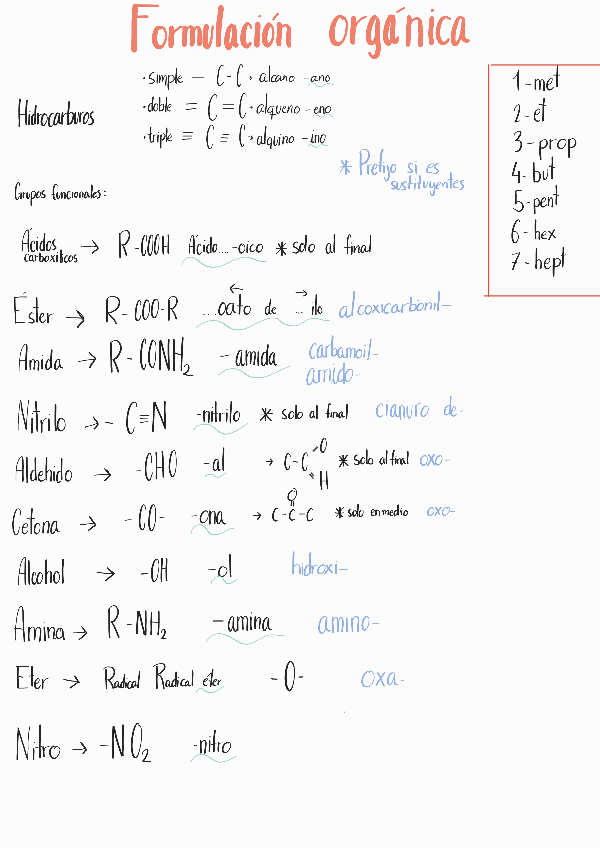 Formulación orgánica
Hidrocarburos
·simple — C-C · alcano -ano
·doble = C=C · alqueno -eno
·triple ≡ C≡C · alquino -ino
* Prefijo si es sustituyentes
1-met
2-et
3-prop
4-but
5-pent
6-hex
7-hept
Grupos funcionales:
Ácidos carboxílicos → R-COOH Ácido....-oico * solo al final
Éster → R-COO-R ...oato de ... ilo alcoxicarbonil-
Amida → R-CONH2 -amida carbamoil-
amido-
Nitrilo → -C≡N -nitrilo * solo al final cianuro de-
Aldehído → -CHO -al → C-C=O H * solo al final oxo-
Cetona → -CO- -ona → C-C-C O * solo en medio oxo-
Alcohol → -OH -ol hidroxi-
Amina → R-NH2 -amina amino-
Eter → Radical Radical éter -O- oxa-
Nitro → -NO2 -nitro